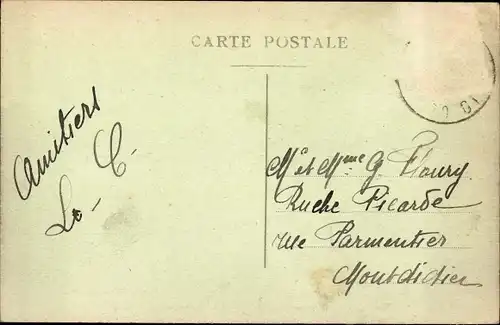 CARTE POSTALE
Amitiers
L. - C. -
Mr et Mme G. Floury
Ruche Picarde
rue Parmentier
Montdidier